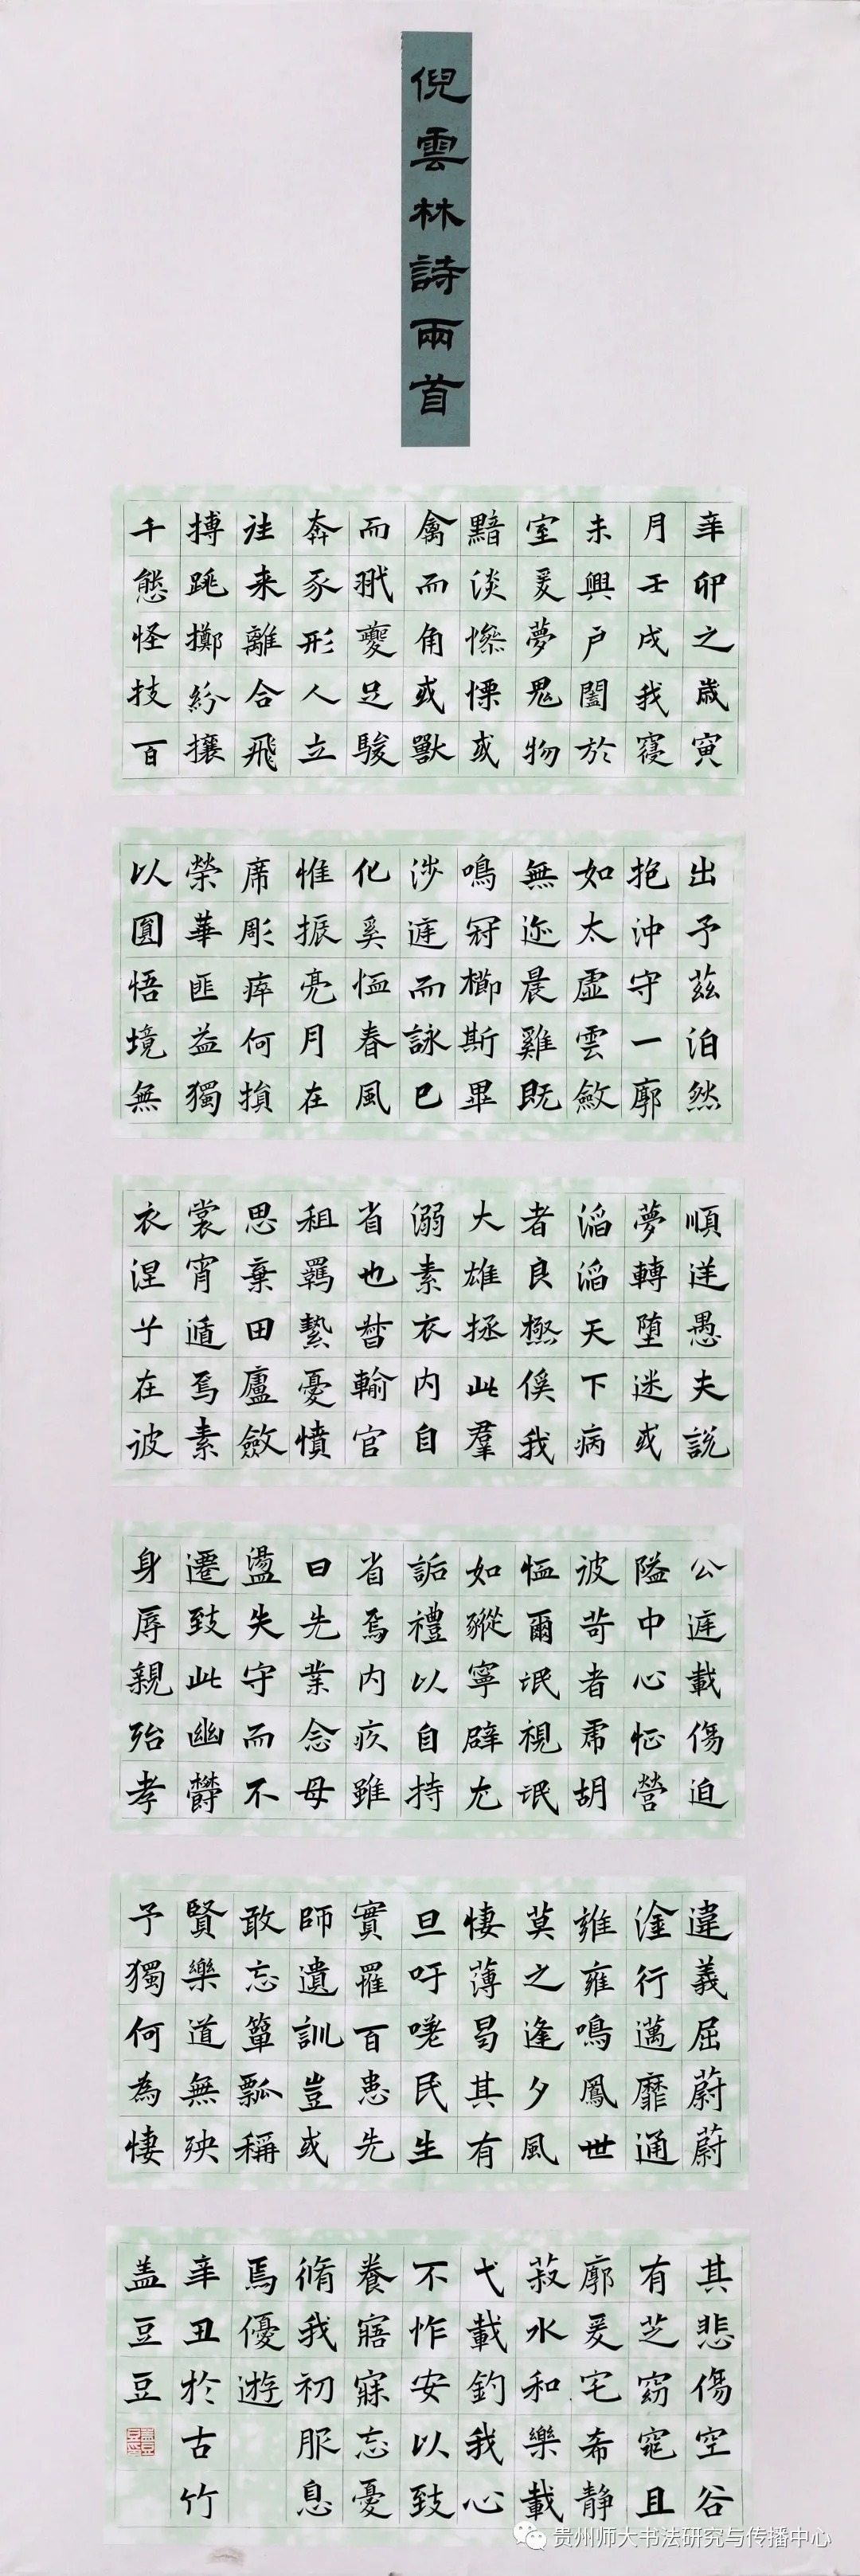 倪雲林詩兩首
辛卯之歲寅
月壬戌我寢
未興戶闔於
室爰夢鬼物
黯淡慘慄或
禽而角或獸
而翐夔足駿
奔豕形人立
往来離合飛
搏跳擲紛攘
千態怪技百
出予茲泊然
抱沖守一廓
如太虛雲斂
無迹晨雞既
鳴冠櫛斯畢
涉庭而詠巳
化奚恤春風
惟振亮月在
席彫瘁何損
榮華匪益獨
以圓悟境無
順逆愚夫說
夢轉堕迷或
滔滔天下病
者良極傒我
大雄拯此羣
溺素衣内自
省也督輸官
租羈縶憂憤
思棄田廬斂
裳宵遁焉素
衣涅兮在彼
公庭載傷迫
隘中心怔營
彼苛者虎胡
恤爾氓視氓
如豵寧辟尤
詬禮以自持
省焉内疚雖
曰先業念母
盪失守而不
遷致此幽鬱
身辱親殆孝
違義屈蔚蔚
淦行邁靡通
雍雍鳴鳳世
莫之逢夕風
悽薄曷其有
旦吁嗟民生
實罹百患先
師遺訓豈或
敢忘簞瓢稱
賢樂道無殃
予獨何為悽
其悲傷空谷
有芝窈窕且
廓爰宅希静
菽水和樂載
弋載釣我心
不怍安以致
養寤寐忘憂
脩我初服息
焉優遊
辛丑於古竹
盖豆豆
贵州师大书法研究与传播中心